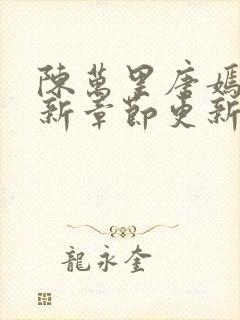 陳萬里唐嫣
新章節更新
龍永奎